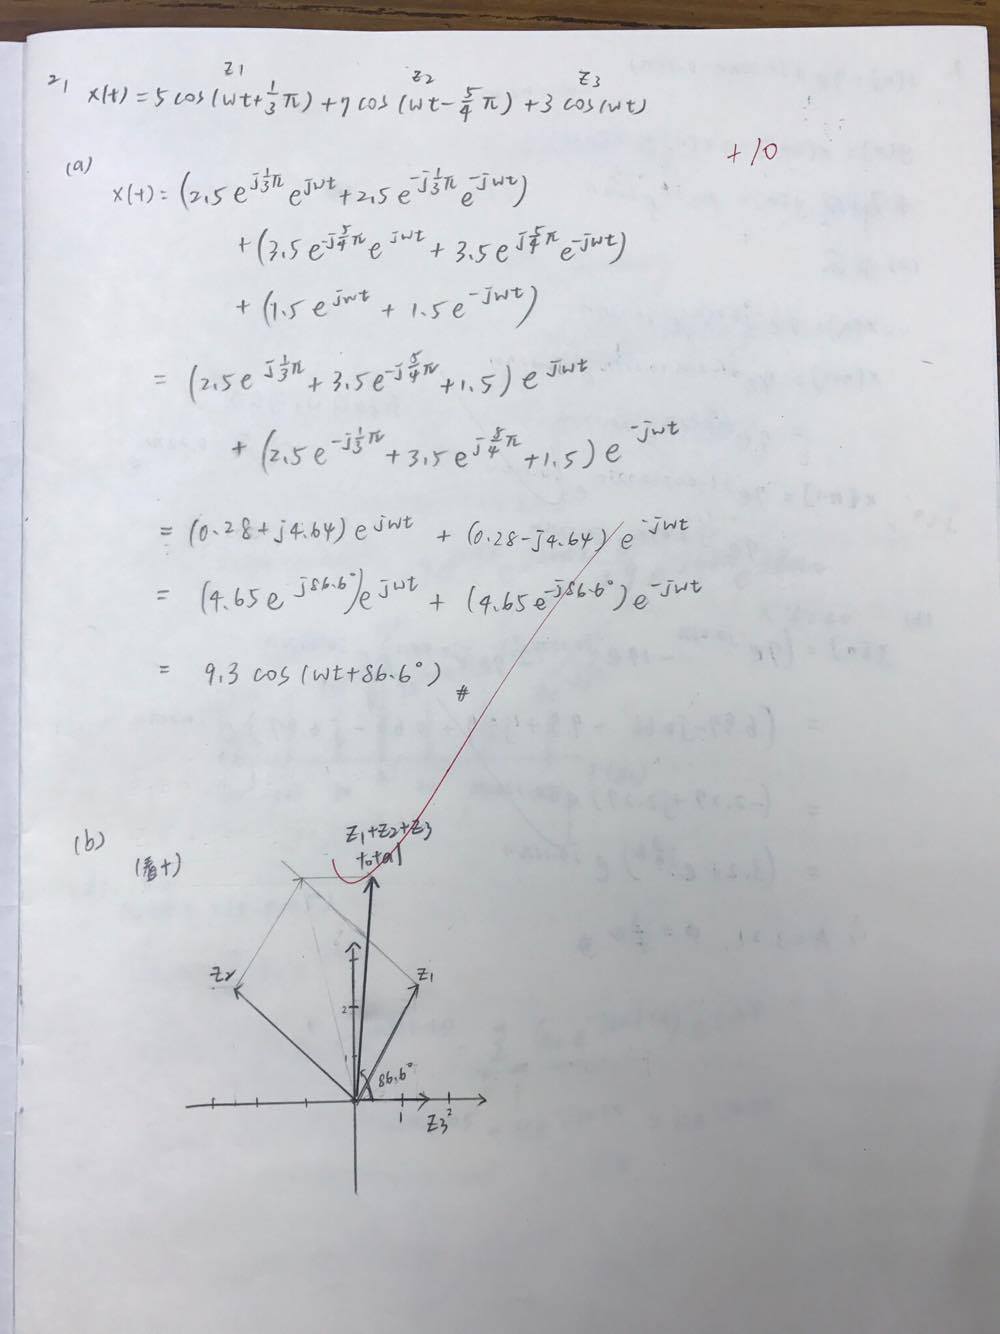 2,
Z1 Z2 Z3
x(t) = 5 cos(wt+1/3π) + 7 cos(wt-5/4π) + 3 cos(wt)
+10
(a)
x(t) = (2.5 e^{j1/3π} e^{jwt} + 2.5 e^{-j1/3π} e^{-jwt})
+ (3.5 e^{-j5/4π} e^{jwt} + 3.5 e^{j5/4π} e^{-jwt})
+ (1.5 e^{jwt} + 1.5 e^{-jwt})
= (2.5 e^{j1/3π} + 3.5 e^{-j5/4π} + 1.5) e^{jwt}
+ (2.5 e^{-j1/3π} + 3.5 e^{j5/4π} + 1.5) e^{-jwt}
= (0.28+j4.64) e^{jwt} + (0.28-j4.64) e^{-jwt}
= (4.65 e^{j86.6°}) e^{jwt} + (4.65 e^{-j86.6°}) e^{-jwt}
= 9.3 cos(wt+86.6°) #
(b)
Z1+Z2+Z3
total
Z2 Z1
2
1
86.6°
1 2
Z3